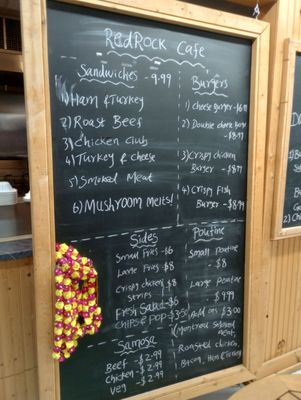 RedRock Cafe
Sandwiches - 9.99
1) Ham & Turkey
2) Roast Beef
3) Chicken Club
4) Turkey & cheese
5) Smoked Meat
6) Mushroom melts!
Burgers
1) Cheese Burger -
2) Double cheese Burger
- $8.99
3) Crispy chicken
Burger - $8.99
4) Crispy Fish
Burger - $8.99
Sides
Small Fries - $6
Large Fries - $8
Crispy chicken $8
strips
Fresh Salad - $6
CHIPS & POP $3.50
Poutine
Small poutine
- $8
Large Poutine
$9.99
Add ons $3.00
(Montreal Smoked
meat,
Roasted chicken,
Bacon, Ham & Turkey
Samosa
Beef - $2.99
Chicken - $2.99
Veg - $2.99